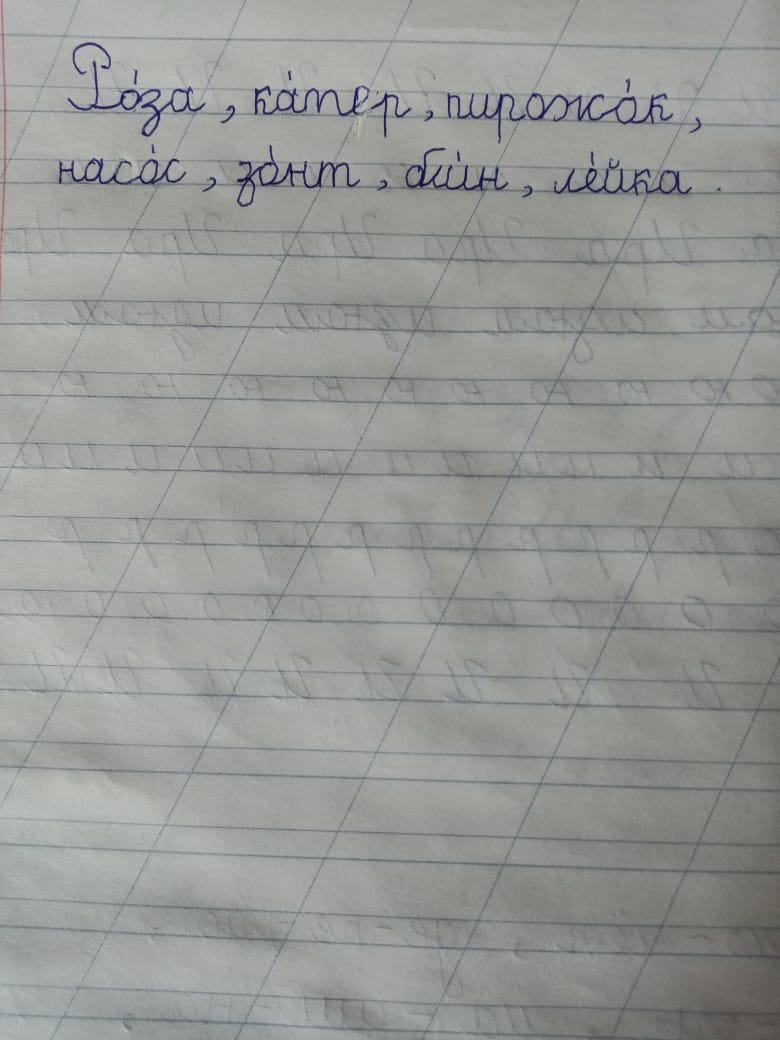 Ро́за, ка́тер, пирожо́к,
насо́с, зо́нт, бли́н, ле́йка.